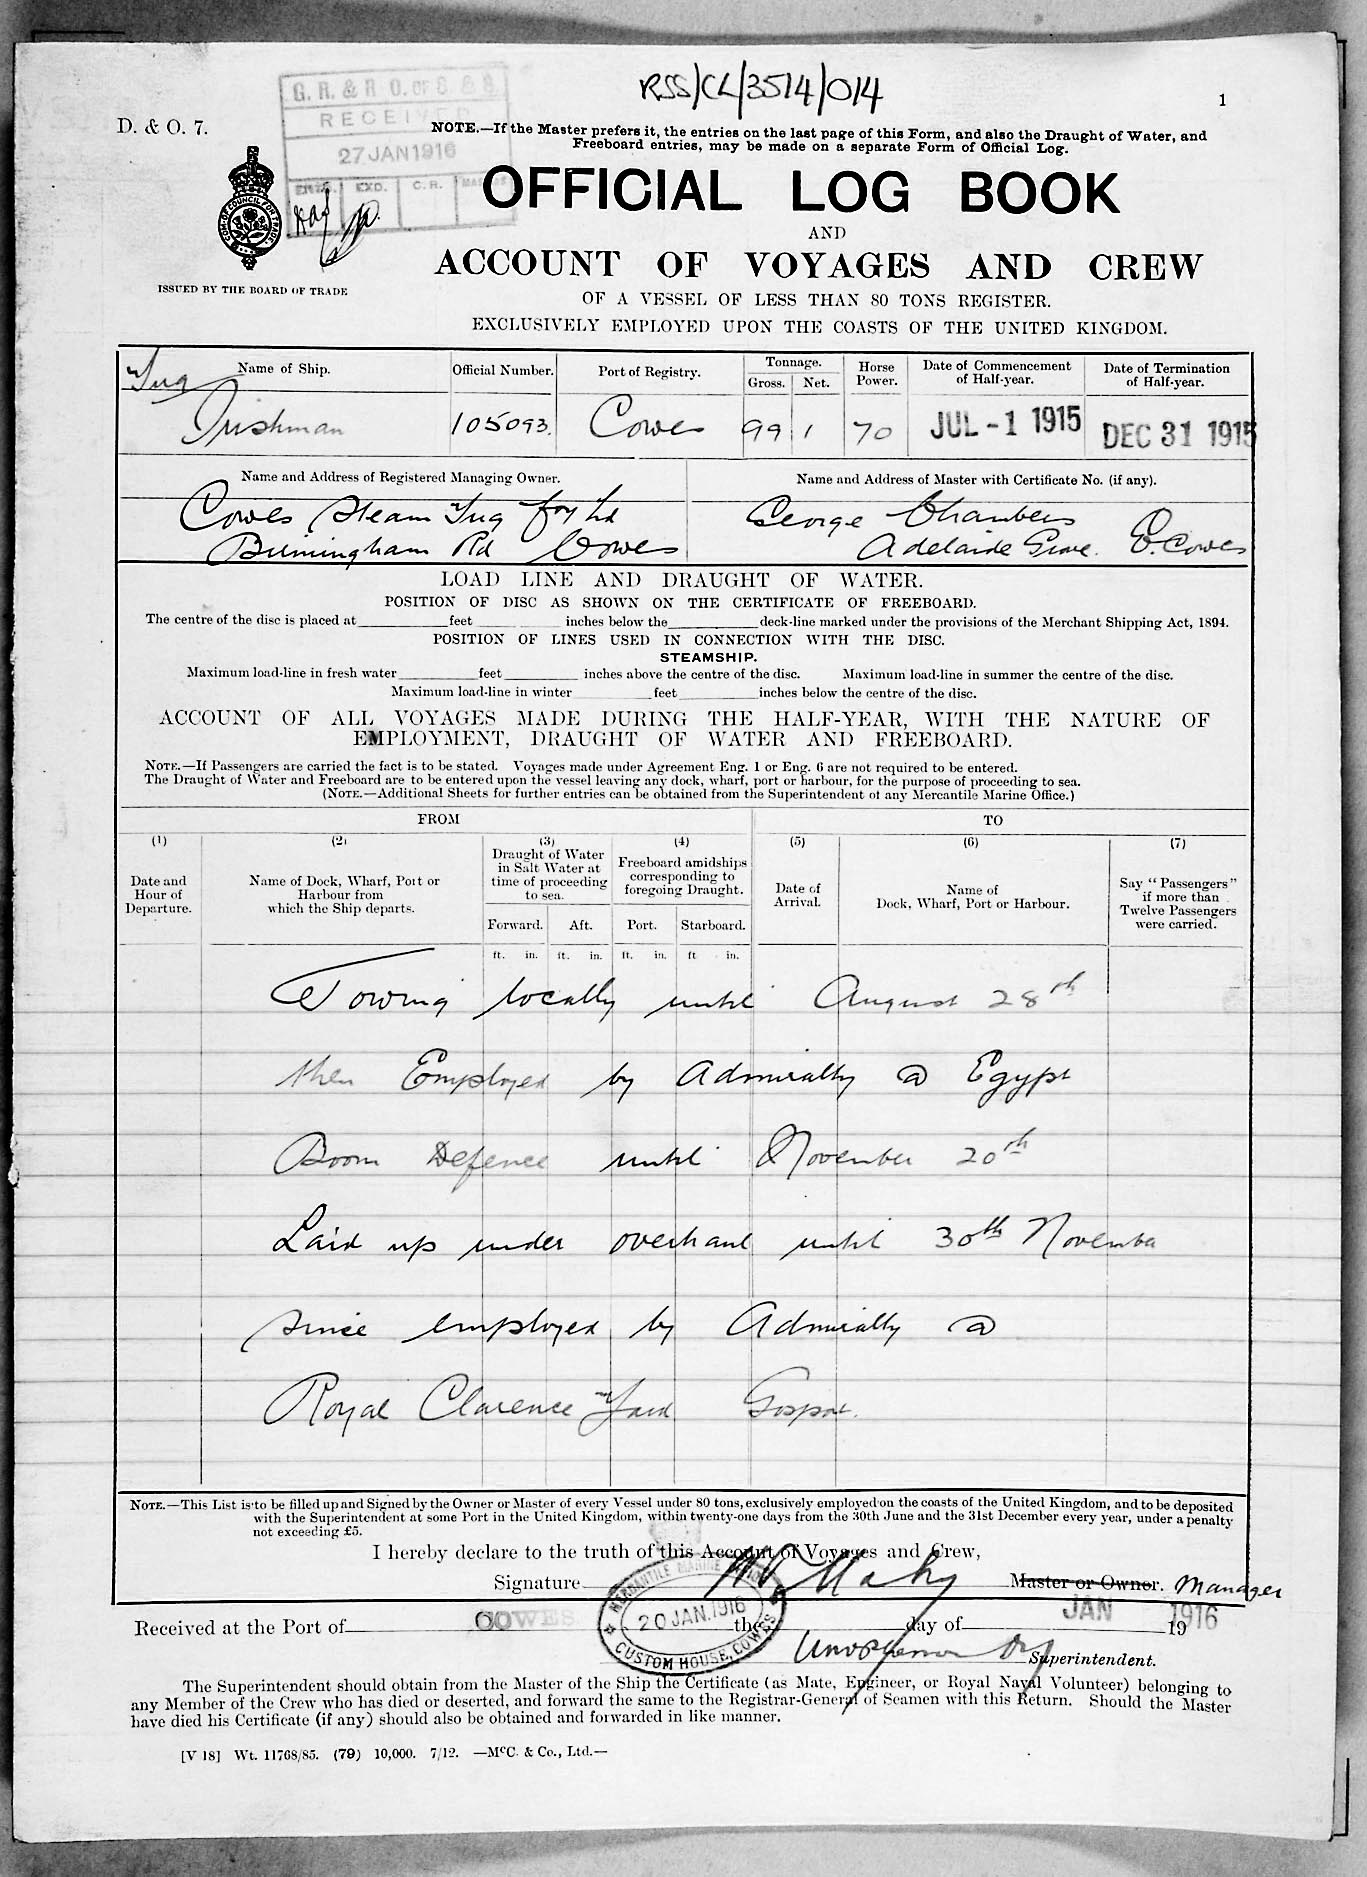 RSS/CL/3514/014
1
G. R. & R. O. OF S. & S.
RECEIVED
27 JAN 1916
EXD. C.R.
D. & O. 7.
NOTE.—If the Master prefers it, the entries on the last page of this Form, and also the Draught of Water, and
Freeboard entries, may be made on a separate Form of Official Log.
OFFICIAL LOG BOOK
AND
ACCOUNT OF VOYAGES AND CREW
ISSUED BY THE BOARD OF TRADE
OF A VESSEL OF LESS THAN 80 TONS REGISTER.
EXCLUSIVELY EMPLOYED UPON THE COASTS OF THE UNITED KINGDOM.
Name of Ship. Official Number. Port of Registry. Tonnage. Gross. Net. Horse Power. Date of Commencement of Half-year. Date of Termination of Half-year.
Tug
Irishman 105093. Cowes 99 1 70 JUL -1 1915 DEC 31 1915
Name and Address of Registered Managing Owner. Name and Address of Master with Certificate No. (if any).
Cowes Steam Tug Coy Ld George Chambers
Birmingham Rd Cowes Adelaide Grove. E. Cowes
LOAD LINE AND DRAUGHT OF WATER.
POSITION OF DISC AS SHOWN ON THE CERTIFICATE OF FREEBOARD.
The centre of the disc is placed at feet inches below the deck-line marked under the provisions of the Merchant Shipping Act, 1894.
POSITION OF LINES USED IN CONNECTION WITH THE DISC.
STEAMSHIP.
Maximum load-line in fresh water feet inches above the centre of the disc. Maximum load-line in summer the centre of the disc.
Maximum load-line in winter feet inches below the centre of the disc.
ACCOUNT OF ALL VOYAGES MADE DURING THE HALF-YEAR, WITH THE NATURE OF
EMPLOYMENT, DRAUGHT OF WATER AND FREEBOARD.
NOTE.—If Passengers are carried the fact is to be stated. Voyages made under Agreement Eng. 1 or Eng. 6 are not required to be entered.
The Draught of Water and Freeboard are to be entered upon the vessel leaving any dock, wharf, port or harbour, for the purpose of proceeding to sea.
(NOTE.—Additional Sheets for further entries can be obtained from the Superintendent of any Mercantile Marine Office.)
FROM TO
(1) (2) (3) (4) (5) (6) (7)
Date and Hour of Departure.
Name of Dock, Wharf, Port or Harbour from which the Ship departs.
Draught of Water in Salt Water at time of proceeding to sea.
Freeboard amidships corresponding to foregoing Draught.
Date of Arrival.
Name of Dock, Wharf, Port or Harbour.
Say "Passengers" if more than Twelve Passengers were carried.
Forward. Aft. Port. Starboard.
ft. in. ft. in. ft. in. ft in.
Towing locally until August 28th
then Employed by Admiralty @ Egypt
Boom Defence until November 20th
Laid up under overhaul until 30th November
since employed by Admiralty @
Royal Clarence Yard Gosport.
NOTE.—This List is to be filled up and Signed by the Owner or Master of every Vessel under 80 tons, exclusively employed on the coasts of the United Kingdom, and to be deposited
with the Superintendent at some Port in the United Kingdom, within twenty-one days from the 30th June and the 31st December every year, under a penalty
not exceeding £5.
I hereby declare to the truth of this Account of Voyages and Crew,
Signature Master or Owner. Manager
MERCANTILE MARINE OFFICE
20 JAN. 1916
CUSTOM HOUSE, COWES
Received at the Port of COWES the day of JAN 1916
Superintendent.
The Superintendent should obtain from the Master of the Ship the Certificate (as Mate, Engineer, or Royal Naval Volunteer) belonging to
any Member of the Crew who has died or deserted, and forward the same to the Registrar-General of Seamen with this Return. Should the Master
have died his Certificate (if any) should also be obtained and forwarded in like manner.
[V 18] Wt. 11768/85. (79) 10,000. 7/12. —McC. & Co., Ltd.—